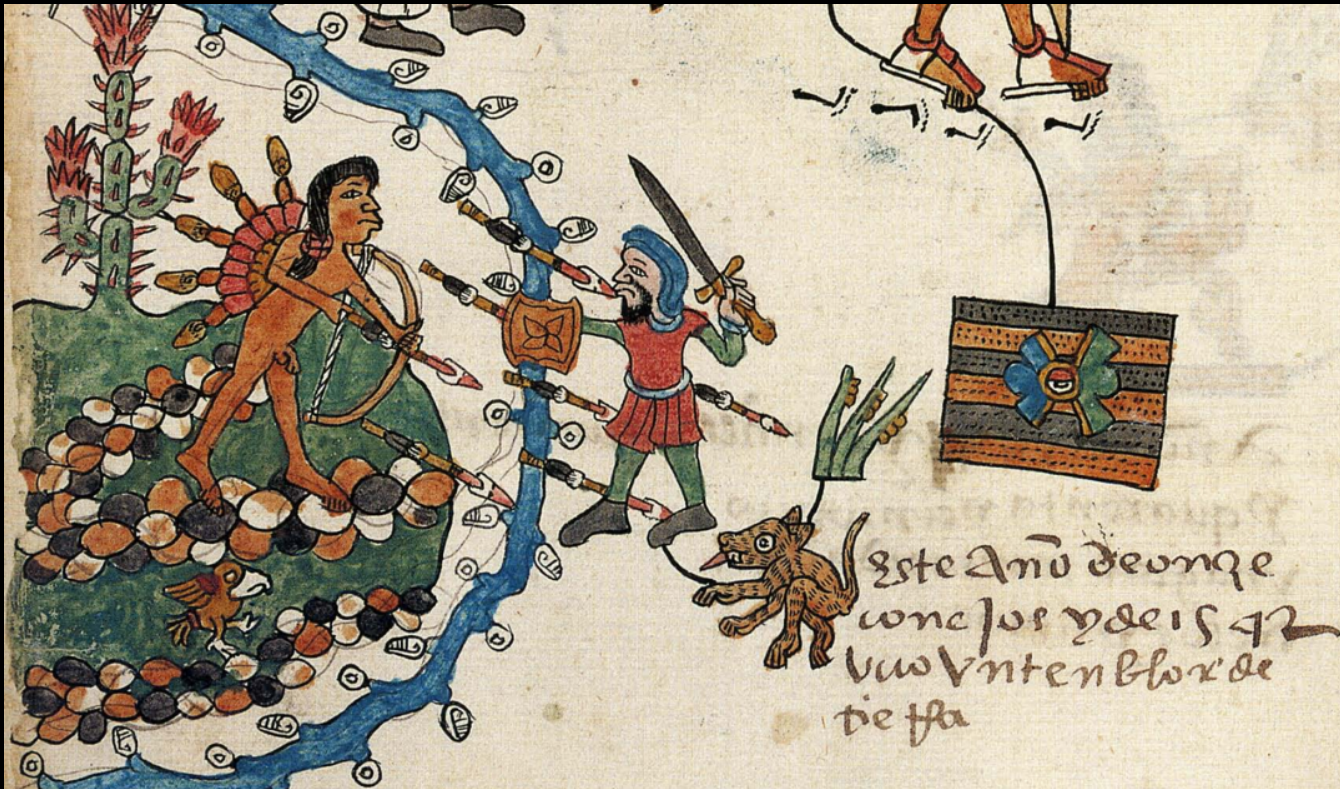 Este Año de onze
conejos y de 1542
uvo un tenblor de
tierra